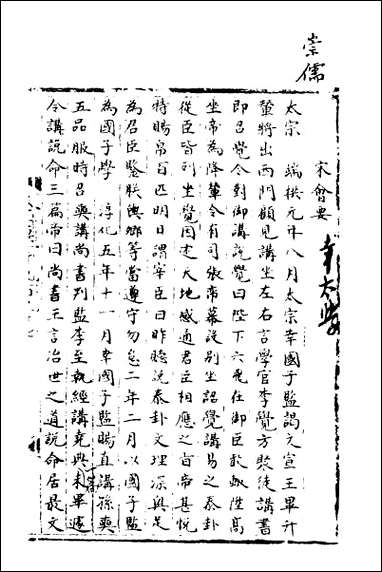 崇儒
宋會要
幸太學
太宗 端拱元年八月太宗幸國子監謁文宣王畢升
輦將出西門顧見講坐左右言學官李覺方聚徒講書
即召覺令對御講說覺曰陛下六飛在御臣敢輒陞高
坐帝為降輦令有司張帝幕設別坐詔覺講易之泰卦
從臣皆列坐覺因述天地感通君臣相應之旨帝甚悅
特賜帛百匹明日謂宰臣曰昨聽說泰卦文理深奧足
為君臣鑒朕與卿等當遵守勿怠二年二月以國子監
為國子學 淳化五年十一月幸國子監賜直講孫奭
五品服時召奭講尚書判監李至執經講堯典未畢遽
令講說命三篇帝曰尚書王言治世之道說命居最文